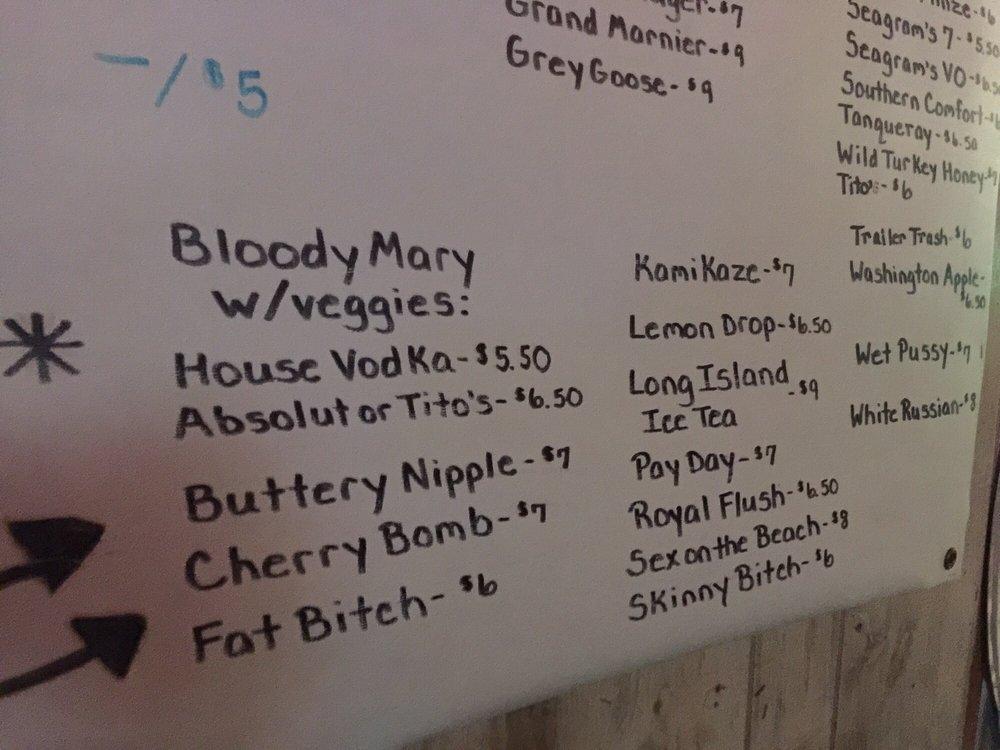 -/$5
Grand Marnier-$9
Grey Goose-$9
Seagram's 7-$5.50
Seagram's VO-
Southern Comfort-
Tanqueray-$6.50
Wild Turkey Honey-$7
Tito's-$6
Bloody Mary
w/veggies:
House Vodka-$5.50
Absolut or Tito's-$6.50
Buttery Nipple-$7
Cherry Bomb-$7
Fat Bitch-$6
Kamikaze-$7
Lemon Drop-$6.50
Long Island
Ice Tea -$9
Pay Day-$7
Royal Flush-$6.50
Sex on the Beach-$8
Skinny Bitch-$6
Trailer Trash-$6
Washington Apple-
$6.50
Wet Pussy-$7
White Russian-$8